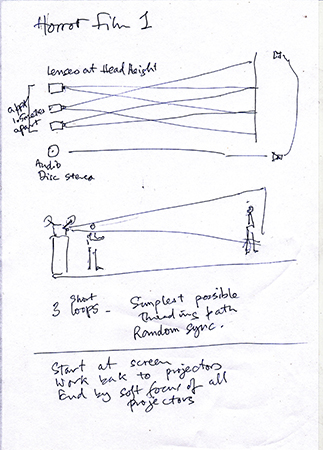 Horror Film 1
Lenses at Head Height
apart
Audio
Disc stereo
3 short loops - Simplest possible
Threading path
Random sync.
Start at screen
Work bak to projectors
End by soft focus of all
projectors